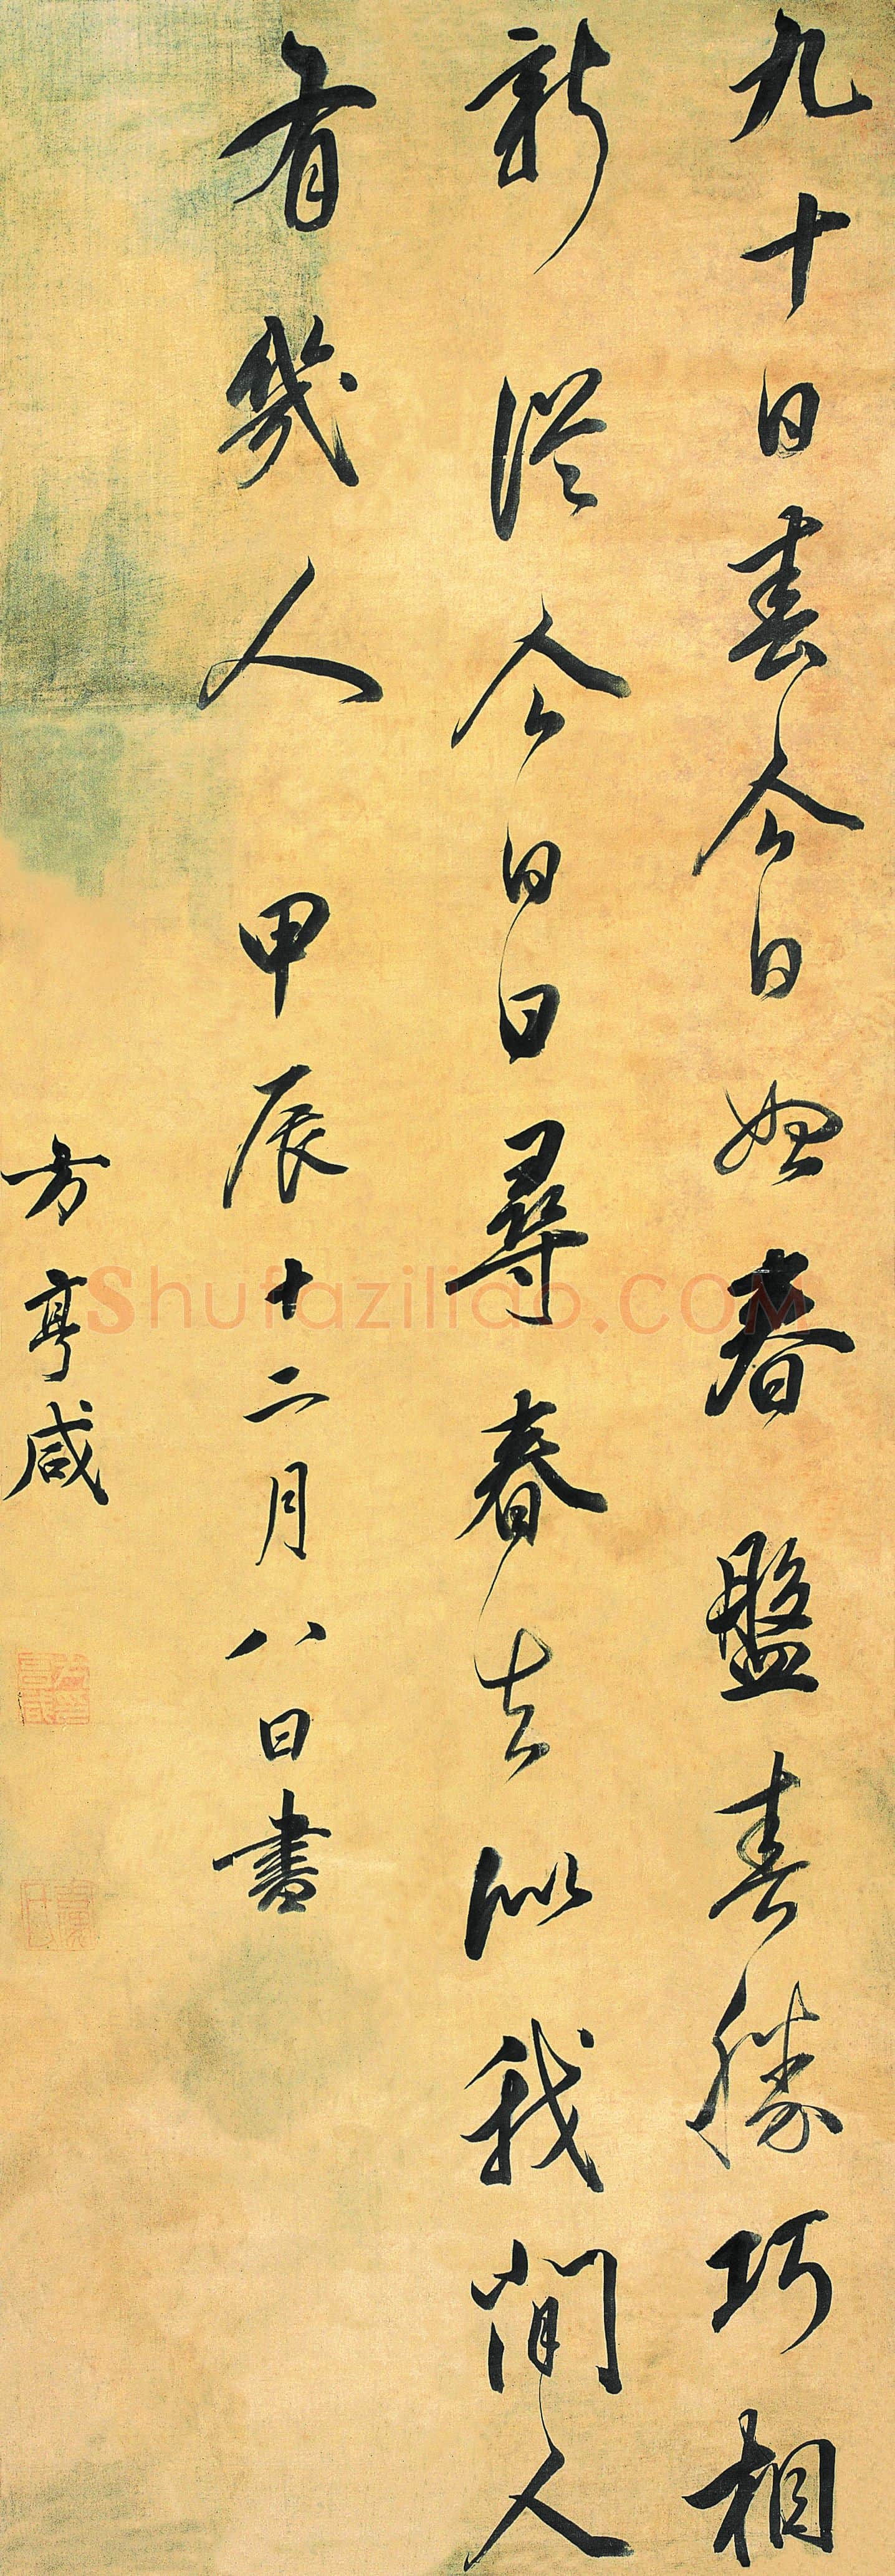 九十日春今日始春盤春勝巧相
新從今日日尋春去似我閒人
有幾人甲辰十二月八日書
方亨咸
Shufaziliao.COM